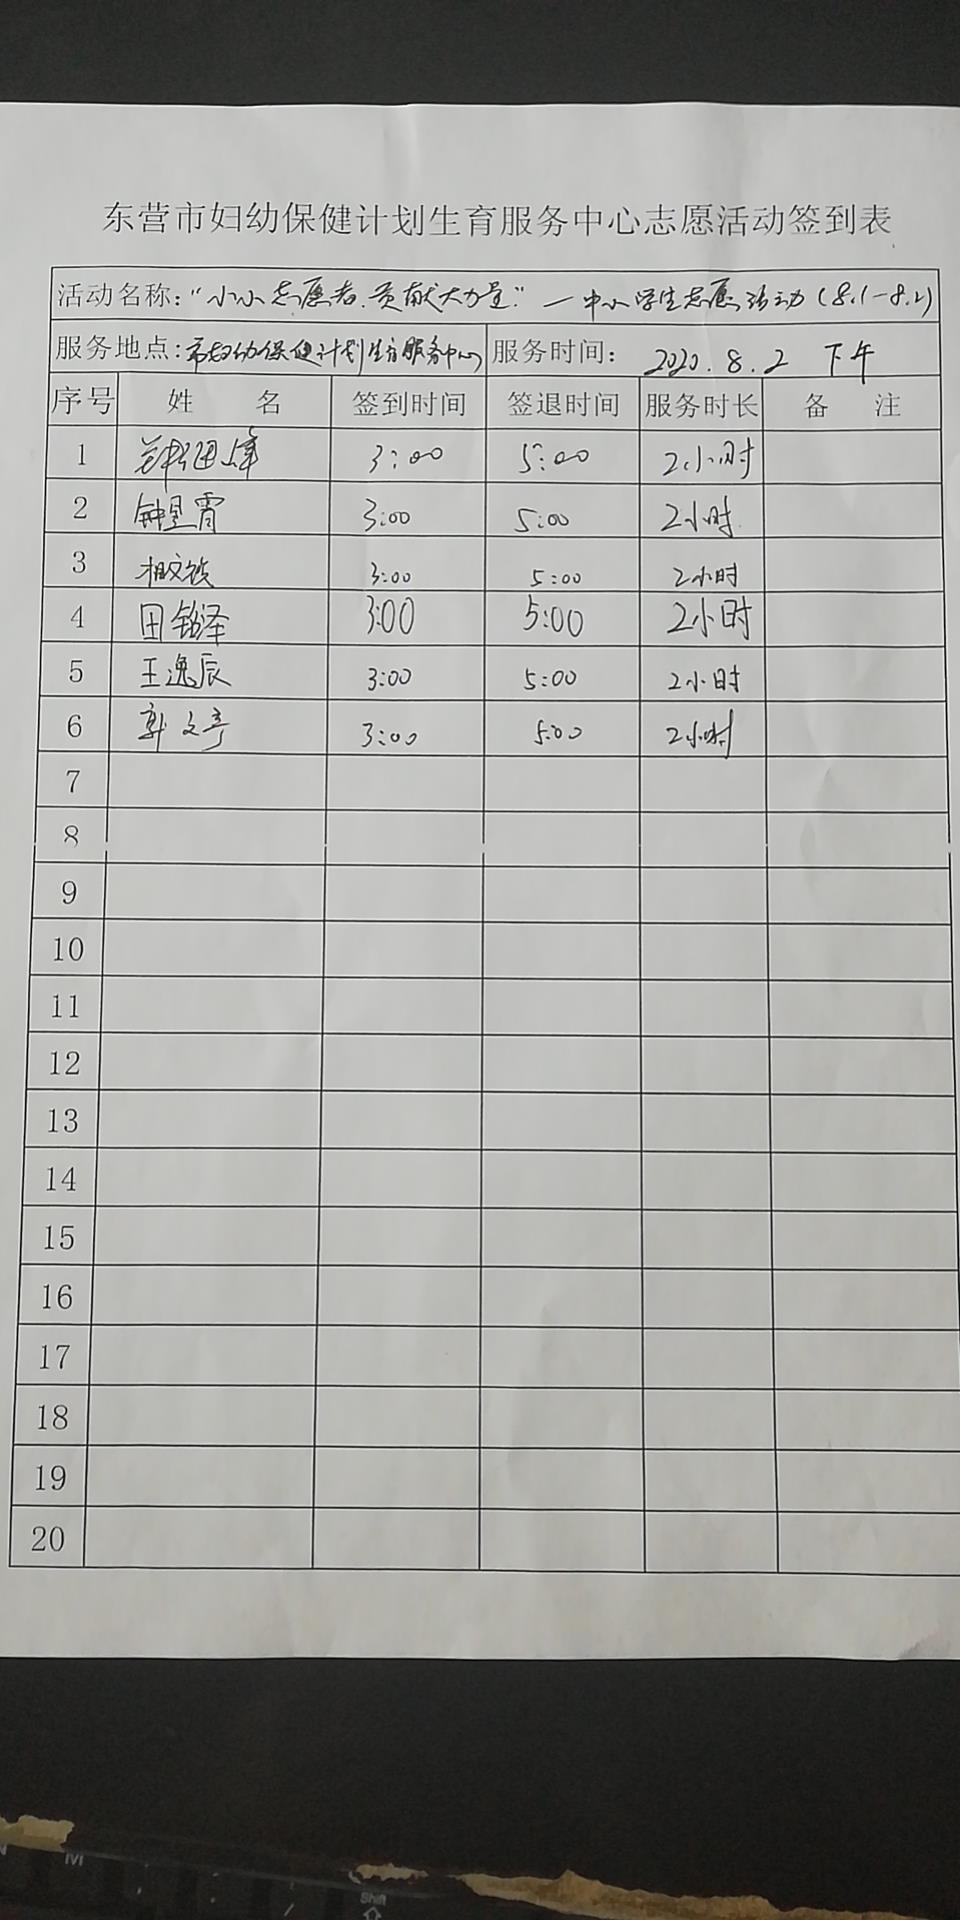 东营市妇幼保健计划生育服务中心志愿活动签到表
活动名称："小小志愿者.贡献大力量."—中小学生志愿活动(8.1-8.2)
服务地点：市妇幼保健计划生育服务中心 服务时间： 2020.8.2 下午
序号 姓 名 签到时间 签退时间 服务时长 备 注
1 3:00 5:00 2小时
2 钟昱霄 3:00 5:00 2小时
3 3:00 5:00 2小时
4 田铭泽 3:00 5:00 2小时
5 王逸辰 3:00 5:00 2小时
6 郭文亭 3:00 5:00 2小时
7
8
9
10
11
12
13
14
15
16
17
18
19
20
Shift